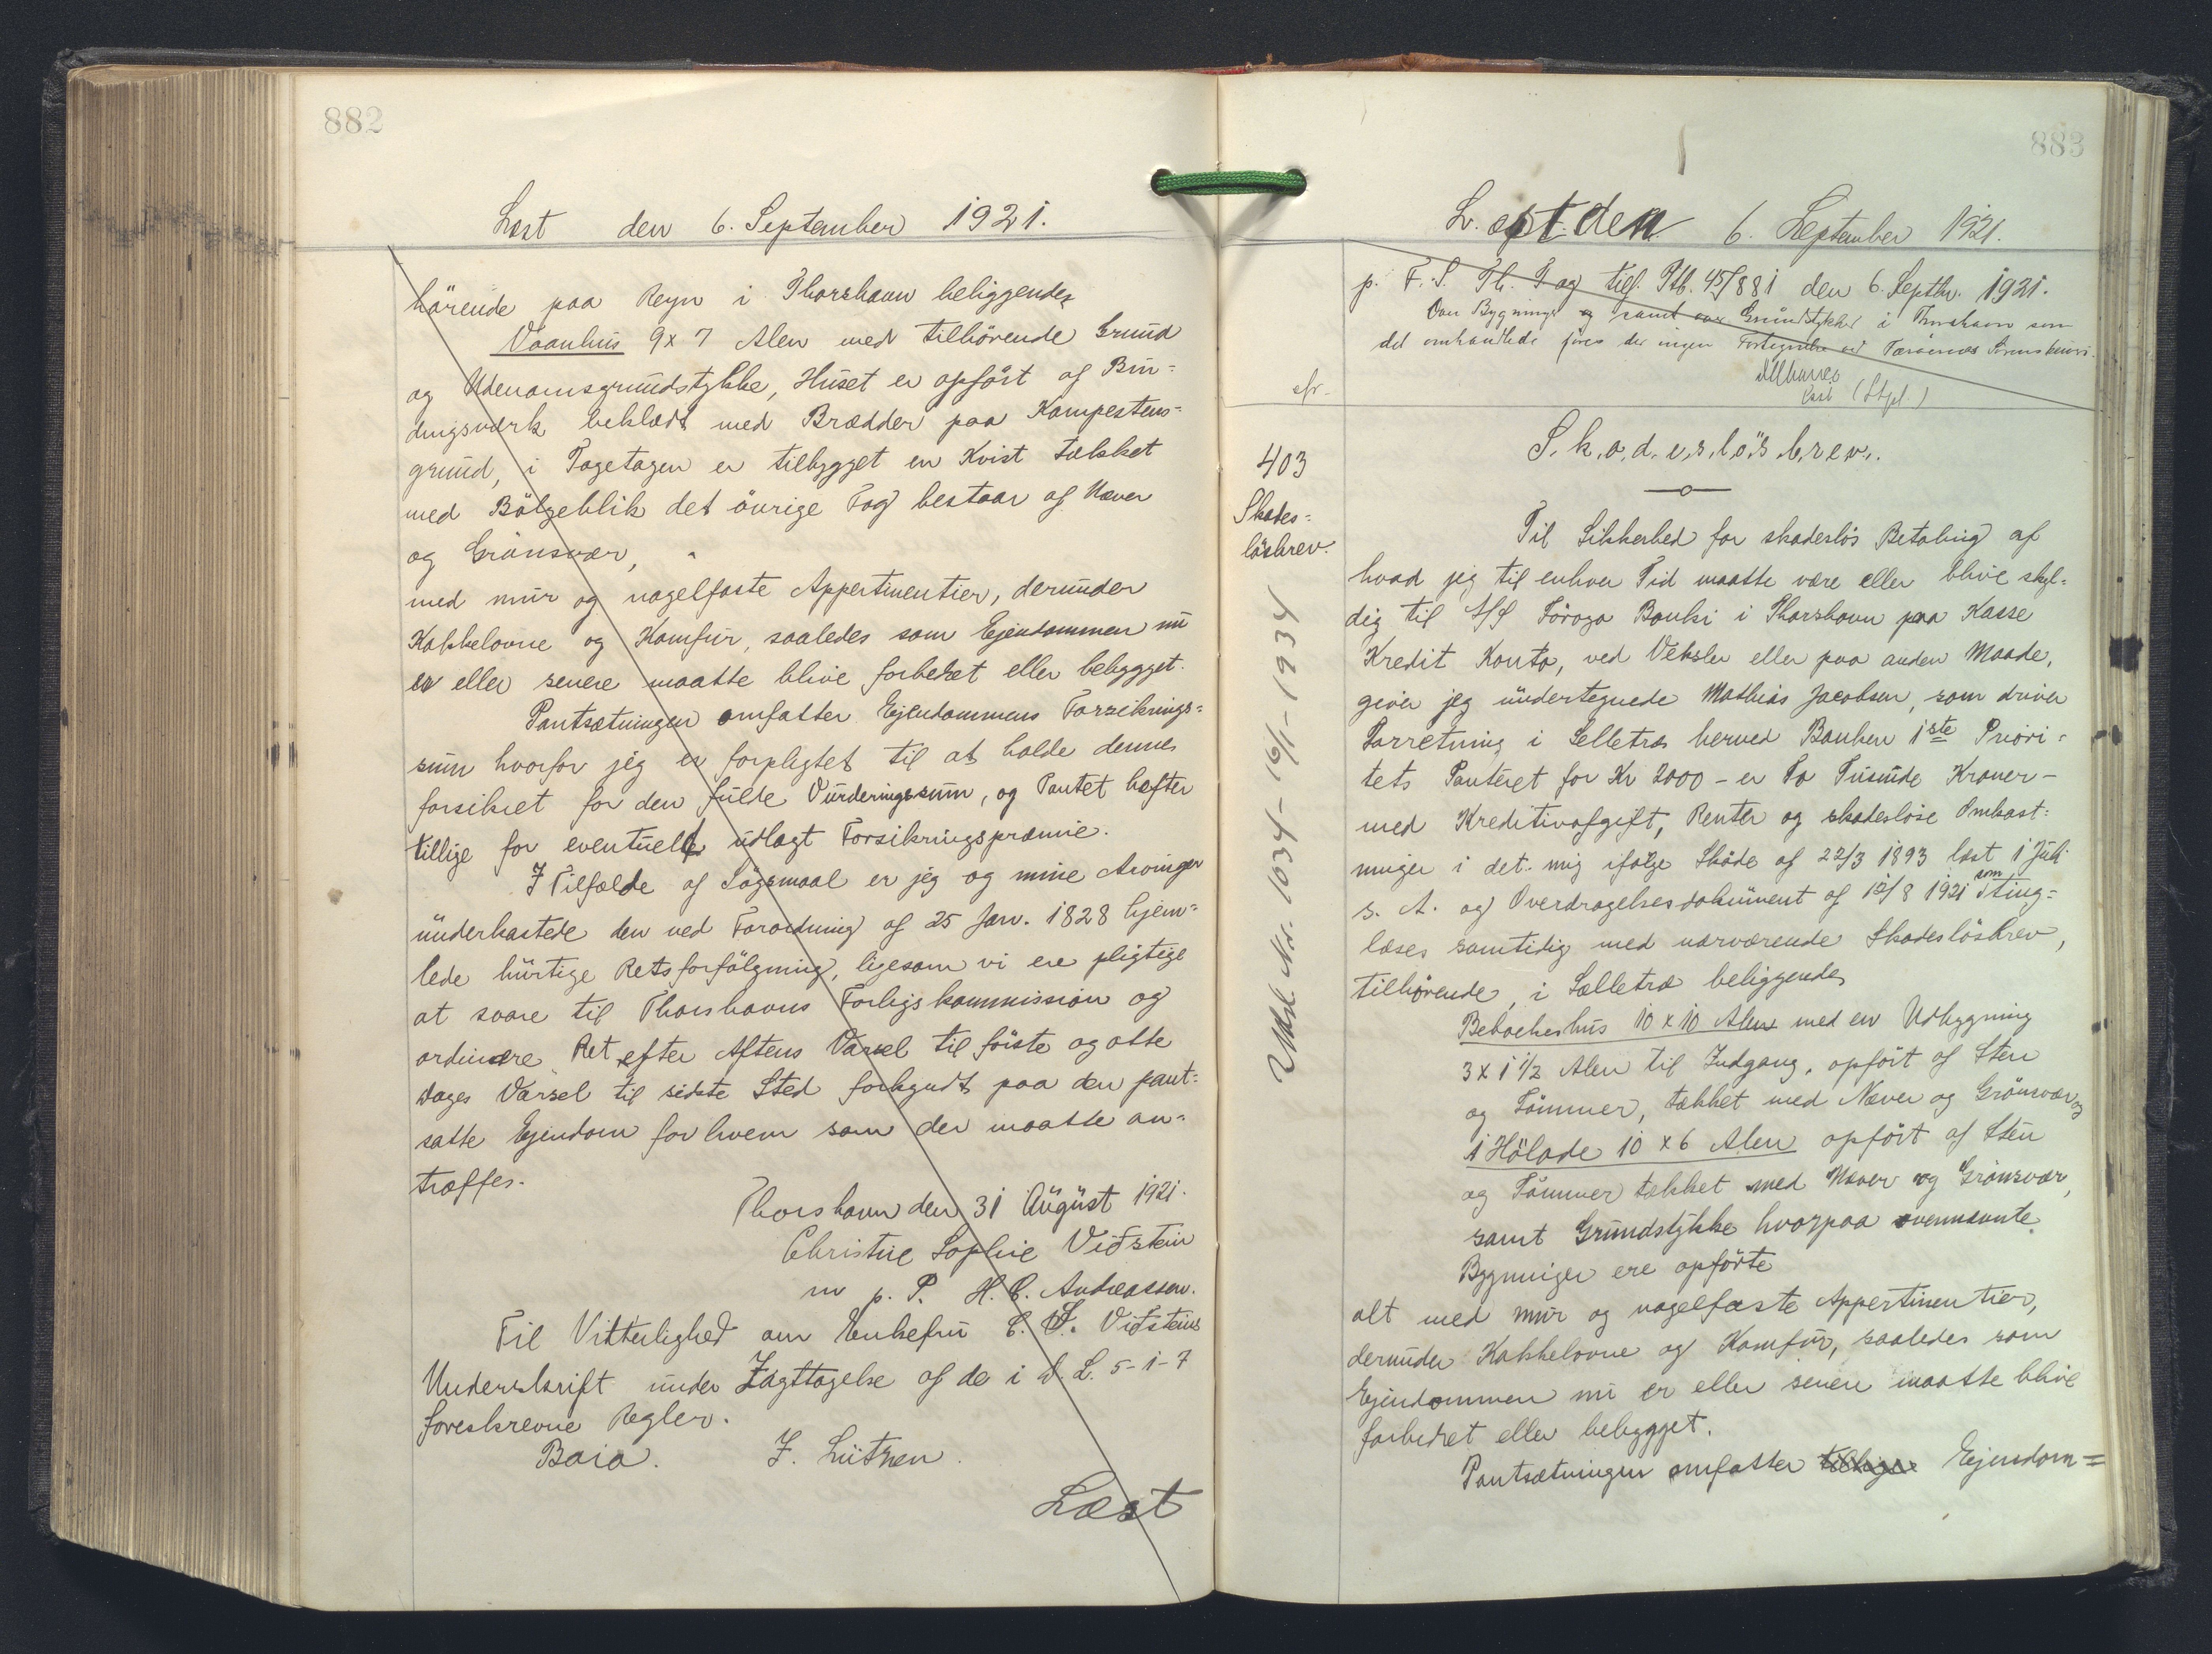 882
Læst den 6. September 1921.
hörende paa Reyn i Thorshavn beliggende
Vaanhus 9 x 7 Alen med tilhörende Grund
og Udenomsgrundstykke, Huset er opfört af Bin=
dingsværk beklædt med Brædder paa Kampestens=
grund, i Tagetagen er tilbygget en Kvist tækket
med Bölgeblik det övrige Tag bestaar af Næver
og Grönsvær,
med mur og nagelfaste Appertinentier, derunder
Kakkelovne og Komfur, saaledes som Ejendommen nu
er eller senere maatte blive forbedret eller bebygget.
Pantsætningen omfatter Ejendommens Forsikrings=
sum hvorfor jeg er forpligtet til at holde dennes
forsikret for den fulde Vurderingssum, og Pantet hæfter
tillige for eventuelt udlagt Forsikringspræmie.
I Tilfælde af Sögsmaal er jeg og mine Arvinger
underkastede den ved Forordning af 25 Jan. 1828 hjem=
lede hurtige Retsforfölgning, ligesom vi ere pligtige
at svare til Thorshavns Forligskommission og
ordinære Ret efter Aftens Varsel til förste og otte
Dages Varsel til sidste Sted forkyndt paa den pant=
satte Ejendom for hvem som der maatte an=
træffes.
Thorshavn den 31 August 1921.
Christine Sophie Viðstein
m p. P. H. C. Andreassen.
Til Vitterlighed om Enkefru C. S. Viðsteins
Underskrift under Iagttagelse af de i D. L. 5-1-7
foreskrevne Regler.
Baia. J. Lützen.
Læst
883
Læst den 6. September 1921.
p. F. S. Th. T og tilf. Ptb. 45/881 den 6. Septbr. 1921.
Over Bygninger og samt over Grundstykker i Thorshavn som
det omhandlede föres der ingen Fortegnelse ved Færöernes Sorenskriveri.
(Stpl.)
cfr.
S.k.a.d.e.s.l.ö.s.b.r.e.v.
403
Skades=
lösbrev.
Udsl. No. 1034 - 16/1 - 1934
Til Sikkerhed for skadeslös Betaling af
hvad jeg til enhver Tid maatte være eller blive skyl=
dig til A/S Föroya Banki i Thorshavn paa Kasse
Kredit Konto, ved Veksler eller paa anden Maade,
giver jeg undertegnede Mathias Jacobsen, som driver
Forretning i Selletræ herved Banken 1ste Priori=
tets Panteret for Kr 2000 - er To Tusinde Kroner -
med Kreditivafgift, Renter og skadeslöse Omkost=
ninger i det mig ifölge Sköde af 22/3 1893 læst 1 Juli
s. A. og Overdragelsesdokument af 12/8 1921 som ting=
læses samtidig med nærværende Skadeslösbrev,
tilhörende, i Sælletræ beliggende
Beboelseshus 10 x 10 Alen med en Udbygning
3 x 1 1/2 Alen til Indgang, opfört af Sten
og Tömmer, tækket med Næver og Grönsvær og
1 Hölade 10 x 6 Alen opfört af Sten
og Tömmer tækket med Næver og Grönsvær,
samt Grundstykke hvorpaa ovennævnte
Bygninger ere opförte
alt med mur og nagelfaste Appertinentier,
derunder Kakkelovne og Komfur, saaledes som
Ejendommen nu er eller senere maatte blive
forbedret eller bebygget.
Pantsætningen omfatter tillige Ejendom=